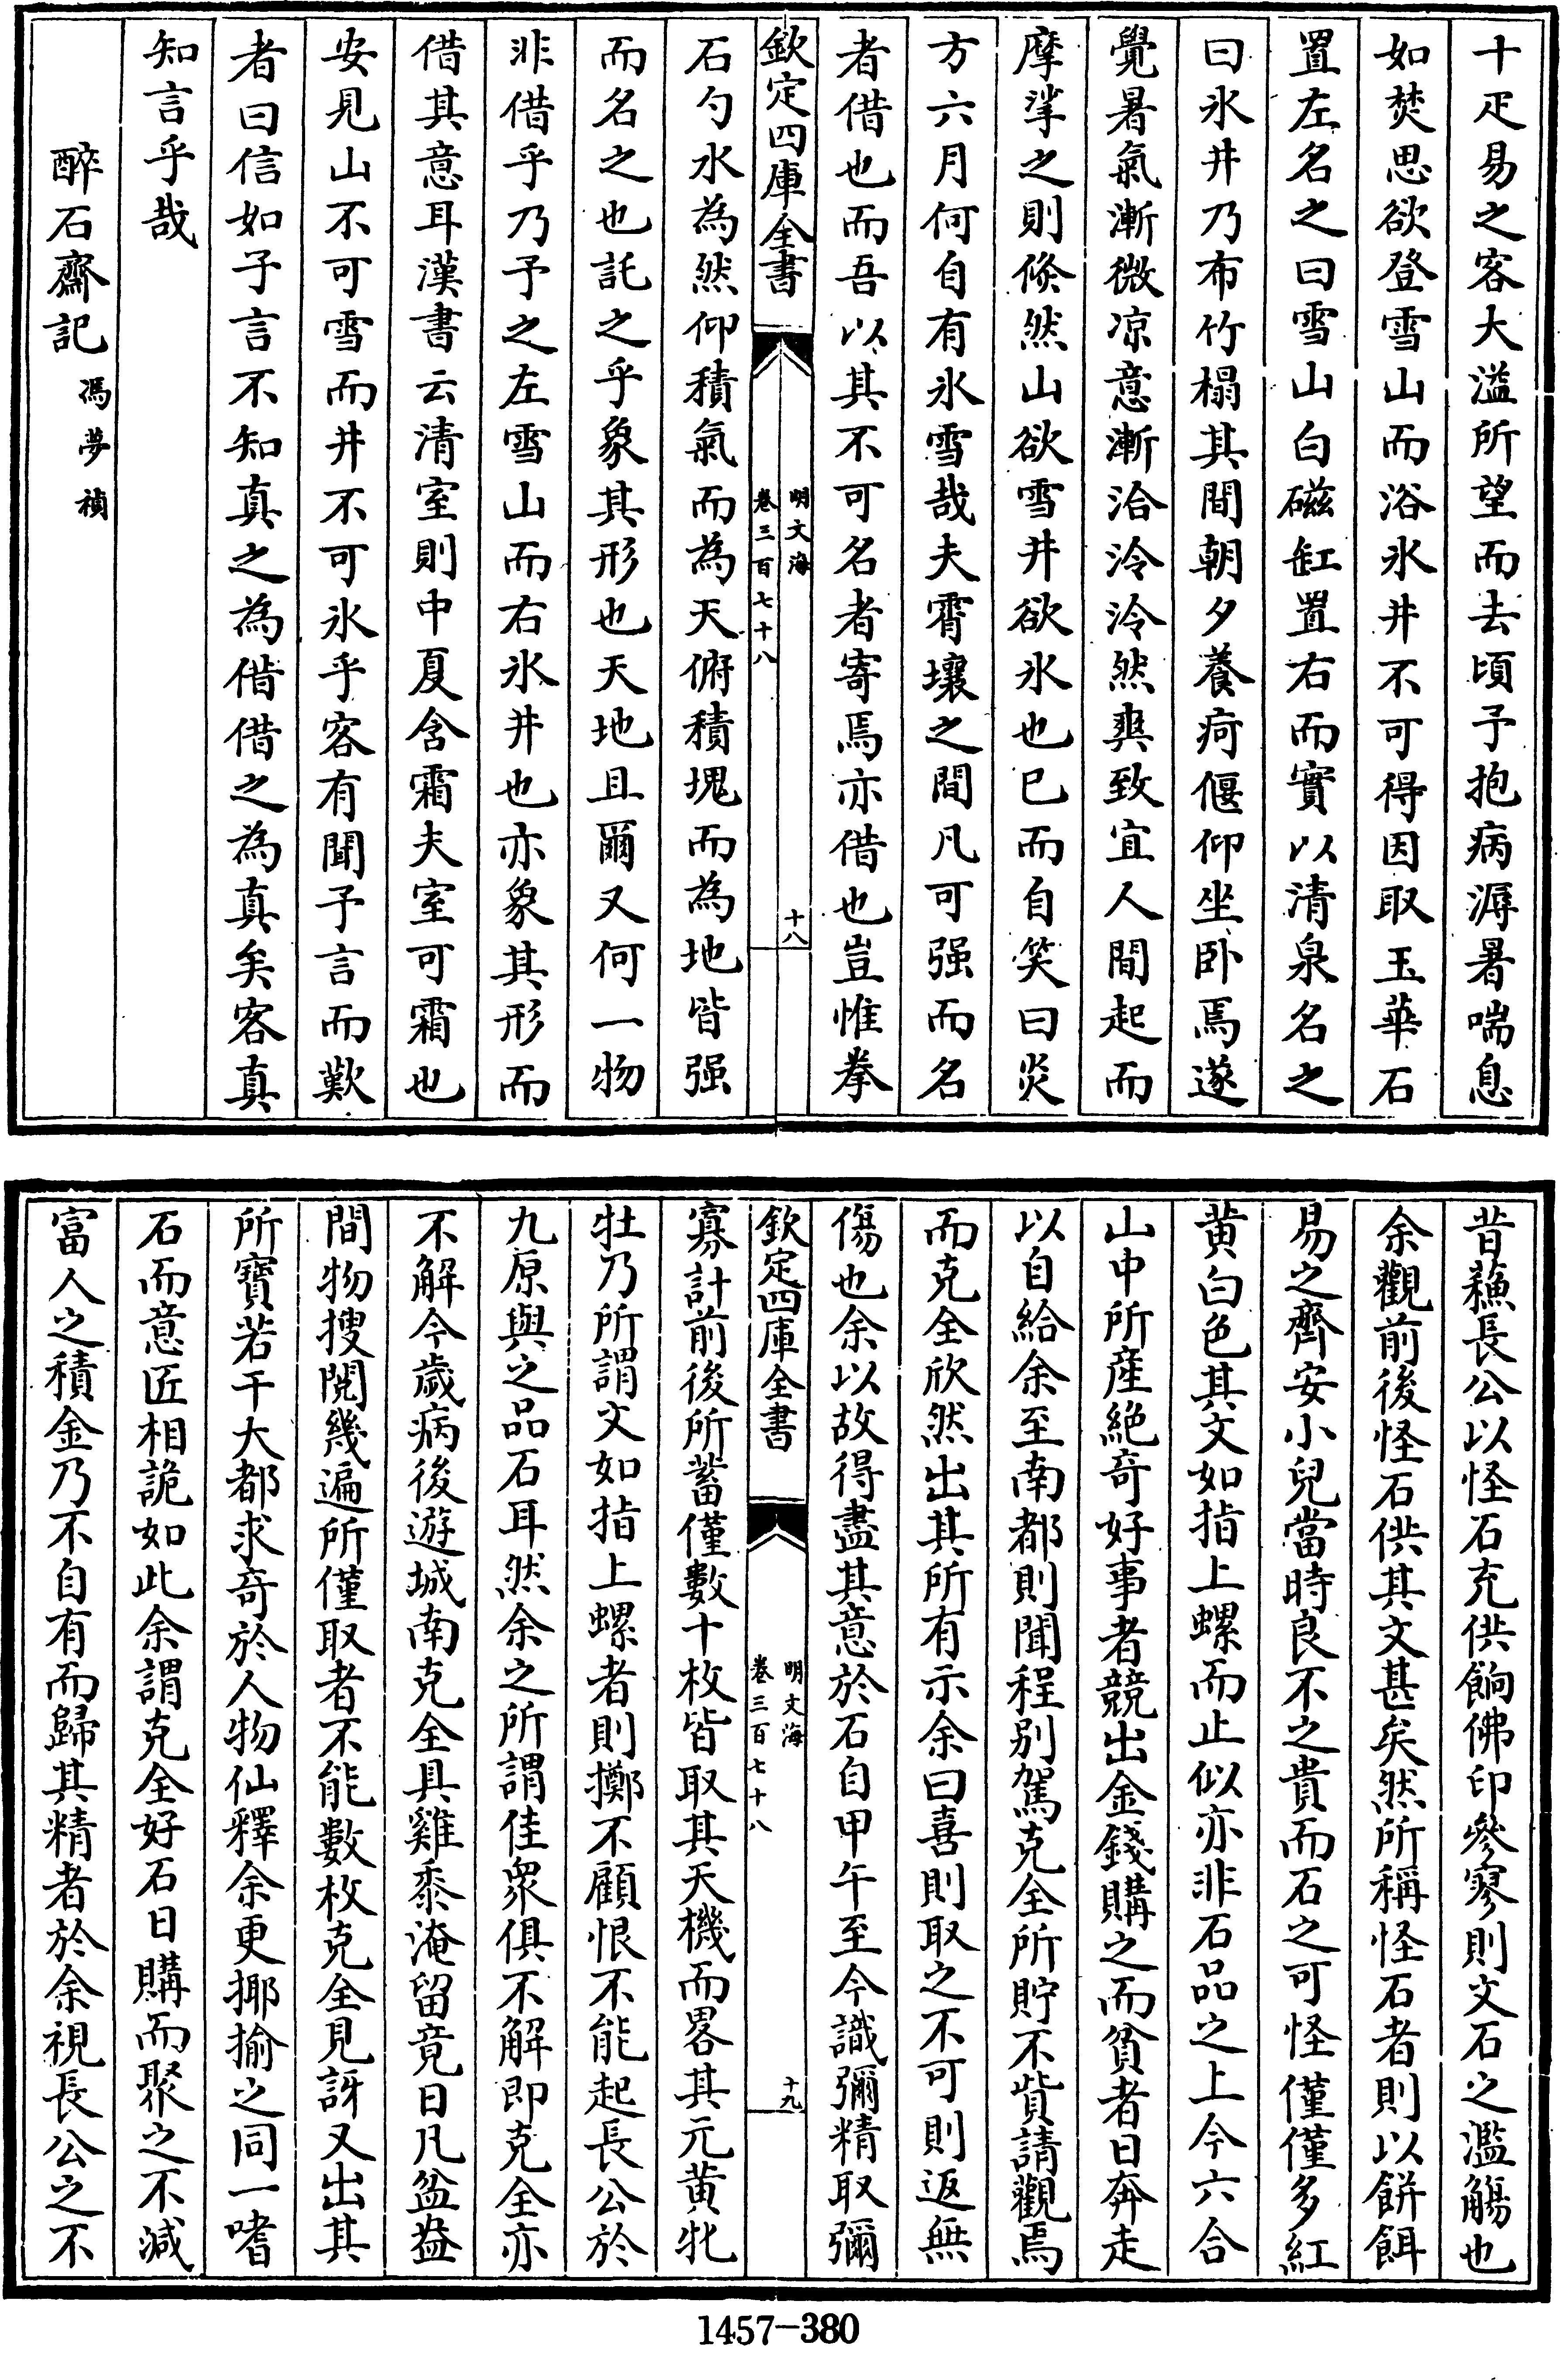 十疋易之客大溢所望而去頃予抱病溽暑喘息
如焚思欲登雪山而浴氷井不可得因取玉華石
置左名之曰雪山白磁缸置右而實以清泉名之
曰氷井乃布竹榻其間朝夕養疴偃仰坐卧焉遂
覺暑氣漸微凉意漸洽泠泠然爽致宜人間起而
摩挲之則倐然山欲雪井欲氷也已而自笑曰炎
方六月何自有氷雪哉夫霄壤之間凡可强而名
者借也而吾以其不可名者寄焉亦借也豈惟拳
欽定四庫全書
明文海
卷三百七十八
十八
石勺水為然仰積氣而為天俯積塊而為地皆强
而名之也託之乎象其形也天地且爾又何一物
非借乎乃予之左雪山而右氷井也亦象其形而
借其意耳漢書云清室則中夏含霜夫室可霜也
安見山不可雪而井不可氷乎客有聞予言而歎
者曰信如子言不知真之為借借之為真矣客真
知言乎哉
醉石齋記 馮夢禎
昔蘓長公以怪石充供餉佛印參寥則文石之濫觴也
余觀前後怪石供其文甚矣然所稱怪石者則以餅餌
易之齊安小兒當時良不之貴而石之可怪僅僅多紅
黄白色其文如指上螺而止似亦非石品之上今六合
山中所産絶奇好事者競出金錢購之而貧者日奔走
以自給余至南都則聞程别駕克全所貯不貲請觀焉
而克全欣然出其所有示余曰喜則取之不可則返無
傷也余以故得盡其意於石自甲午至今識彌精取彌
欽定四庫全書
明文海
卷三百七十八
十九
寡計前後所蓄僅數十枚皆取其天機而畧其元黄牝
牡乃所謂文如指上螺者則擲不顧恨不能起長公於
九原與之品石耳然余之所謂佳衆俱不解即克全亦
不解今歲病後遊城南克全具雞黍淹留竟日凡盆盎
間物搜閲幾遍所僅取者不能數枚克全見訝又出其
所寶若干大都求奇於人物仙釋余更揶揄之同一嗜
石而意匠相詭如此余謂克全好石日購而聚之不減
富人之積金乃不自有而歸其精者於余視長公之不
1457-380